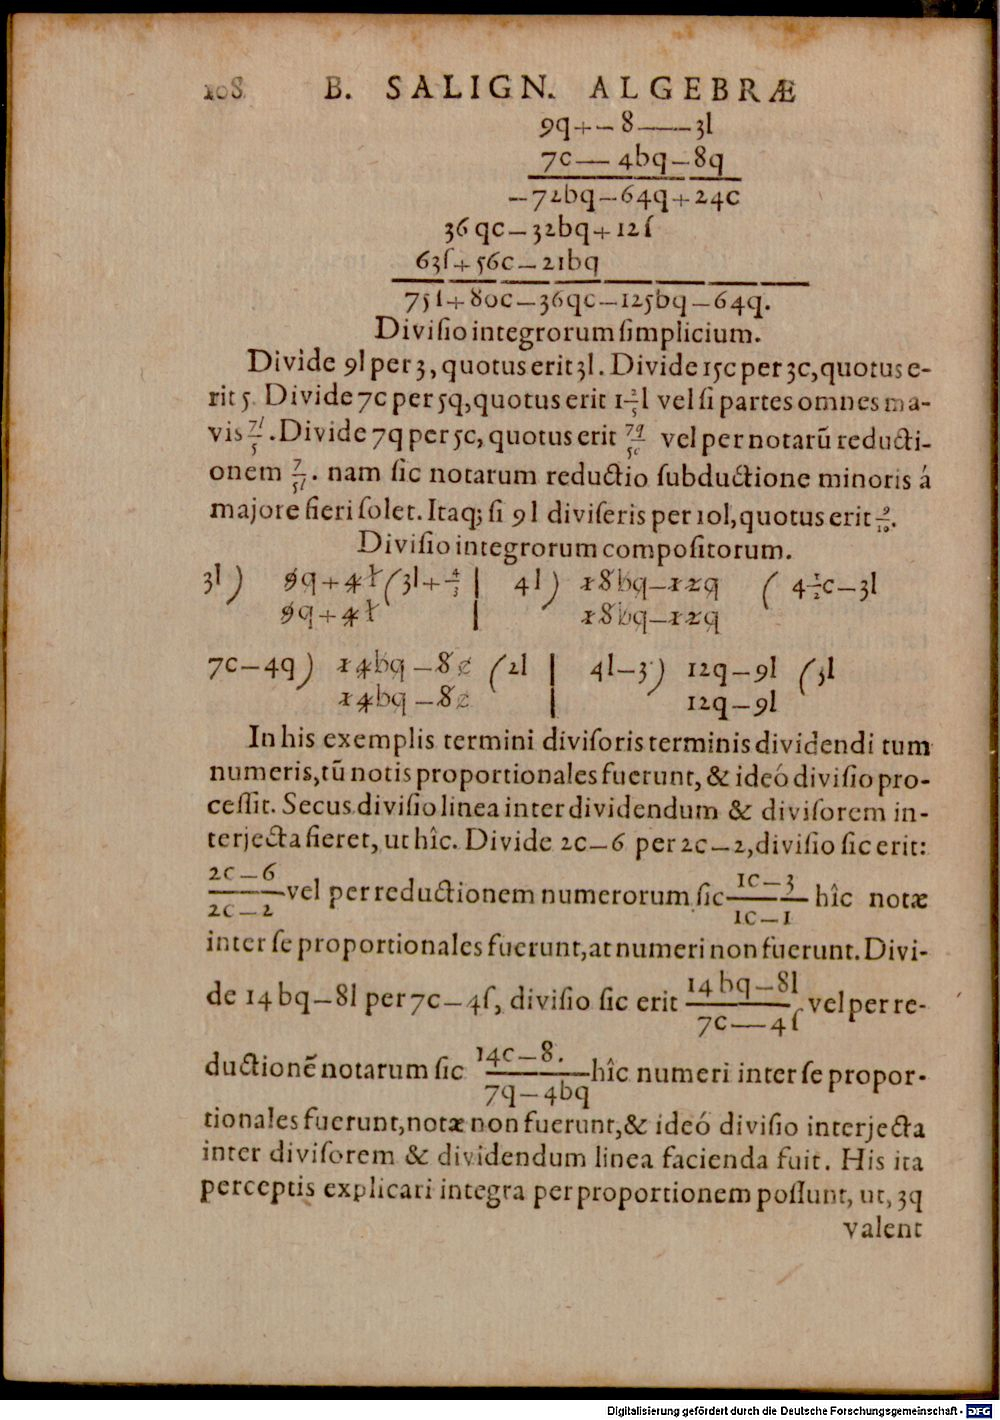 108 B. SALIGN. ALGEBRÆ
9q+–8——3l
7c— 4bq–8q
–72bq–64q+24c
36qc–32bq+12ſ
63ſ+56c–21bq
75ſ+80c–36qc–125bq–64q.
Diviſio integrorum ſimplicium.
Divide 9l per 3, quotus erit 3l. Divide 15c per 3c, quotus e-
rit 5. Divide 7c per 5q, quotus erit 1 2/5 l vel ſi partes omnes ma-
vis 7l/5. Divide 7q per 5c, quotus erit 7q/5c vel per notarū reducti-
onem 7/5l. nam ſic notarum reductio ſubductione minoris á
majore fieri ſolet. Itaq; ſi 9l diviſeris per 10l, quotus erit 9/10.
Diviſio integrorum compoſitorum.
3l) 9q+4l (3l+4/3 | 4l) 18bq–12q ( 4 1/2 c–3l
9q+4l | 18bq–12q
7c–4q) 14bq–8c (2l | 4l–3) 12q–9l (3l
14bq–8c | 12q–9l
In his exemplis termini diviſoris terminis dividendi tum
numeris, tū notis proportionales fuerunt, & ideó diviſio pro-
ceſſit. Secus diviſio linea inter dividendum & diviſorem in-
terjecta fieret, ut hîc. Divide 2c–6 per 2c–2, diviſio ſic erit:
2c–6/2c–2 vel per reductionem numerorum ſic 1c–3/1c–1 hîc notæ
inter ſe proportionales fuerunt, at numeri non fuerunt. Divi-
de 14bq–8l per 7c–4ſ, diviſio ſic erit 14bq–8l/7c—4ſ vel per re-
ductionē notarum ſic 14c–8./7q–4bq hîc numeri inter ſe propor-
tionales fuerunt, notæ non fuerunt, & ideó diviſio interjecta
inter diviſorem & dividendum linea facienda fuit. His ita
perceptis explicari integra per proportionem poſſunt, ut, 3q
valent
Digitalisierung gefördert durch die Deutsche Forschungsgemeinschaft - DFG